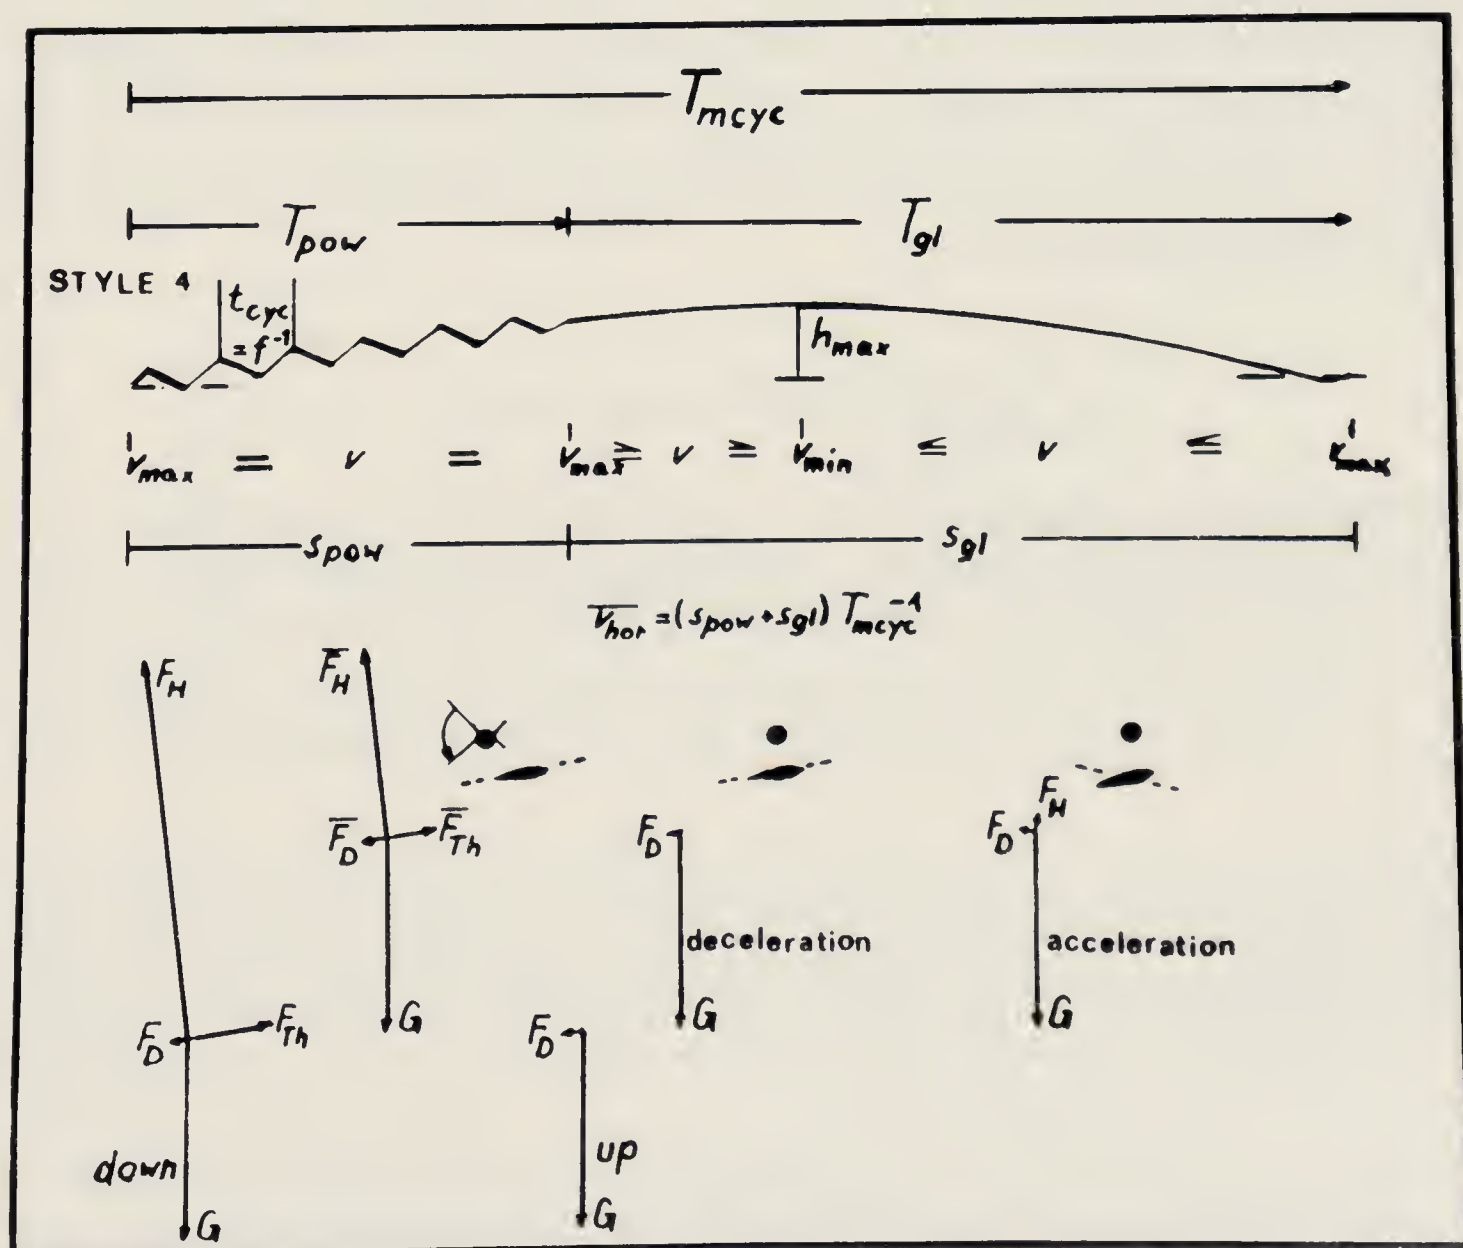 T_mcyc
T_pow T_gl
STYLE 4
t_cyc
= f⁻¹
h_max
v_max = v = v_max ≥ v ≥ v_min ≤ v ≤ v_max
s_pow s_gl
v̅_hor = (s_pow + s_gl) T_mcyc⁻¹
F_H F̅_H
F_H
F̅_D F̅_Th F_D F_D
deceleration acceleration
G G G
F_D F_Th F_D
down up
G G